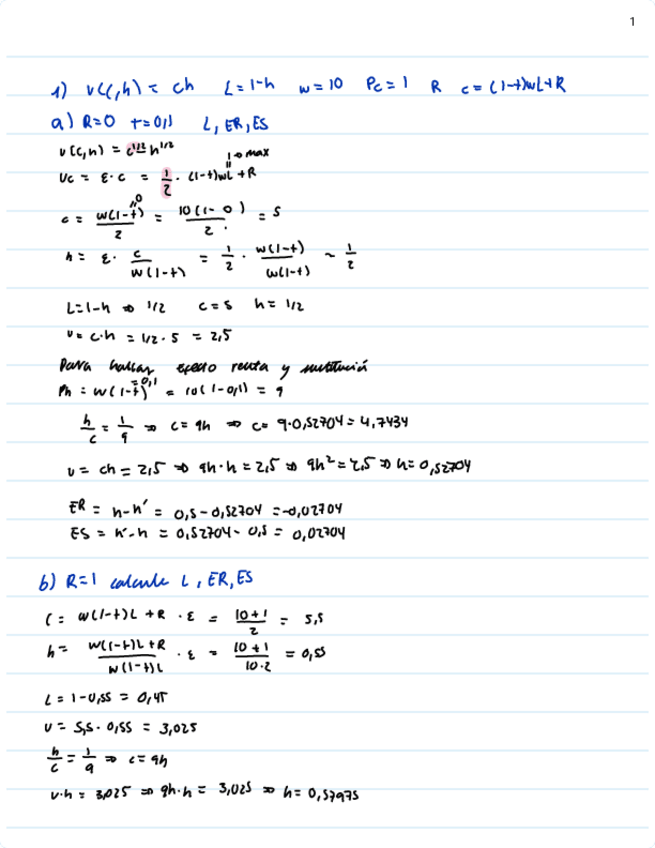 1
1) U(C,h) = ch L = 1-h w = 10 Pc = 1 R c = (1-t)wL+R
a) R=0 t=0,1 L, ER, ES
U(C,h) = c^1/2 h^1/2
Uc = ε·c = 1/2 · (1-t)wL + R
1→max
c = w(1-t)/2 = 10(1-0)/2 = 5
h = ε· c/w(1-t) = 1/2 · w(1-t)/w(1-t) = 1/2
L=1-h ⇒ 1/2 c=5 h=1/2
U= c·h = 1/2·5 = 2,5
Para hallar efecto renta y sustitución
Ph = w(1-t) = 10(1-0,1) = 9
h/c = 1/9 ⇒ c=9h ⇒ c= 9·0,52704 = 4,7434
U = ch = 2,5 ⇒ 9h·h = 2,5 ⇒ 9h² = 2,5 ⇒ h=0,52704
ER = h-h' = 0,5-0,52704 =-0,02704
ES = h'-h = 0,52704-0,5 = 0,02704
b) R=1 calcule L, ER, ES
C = w(1-t)L +R · ε = 10+1/2 = 5,5
h = w(1-t)L+R/w(1-t)L · ε = 10+1/10·2 = 0,55
L = 1-0,55 = 0,45
U = 5,5·0,55 = 3,025
h/c = 1/9 ⇒ c=9h
U·h = 3,025 ⇒ 9h·h = 3,025 ⇒ h=0,57975